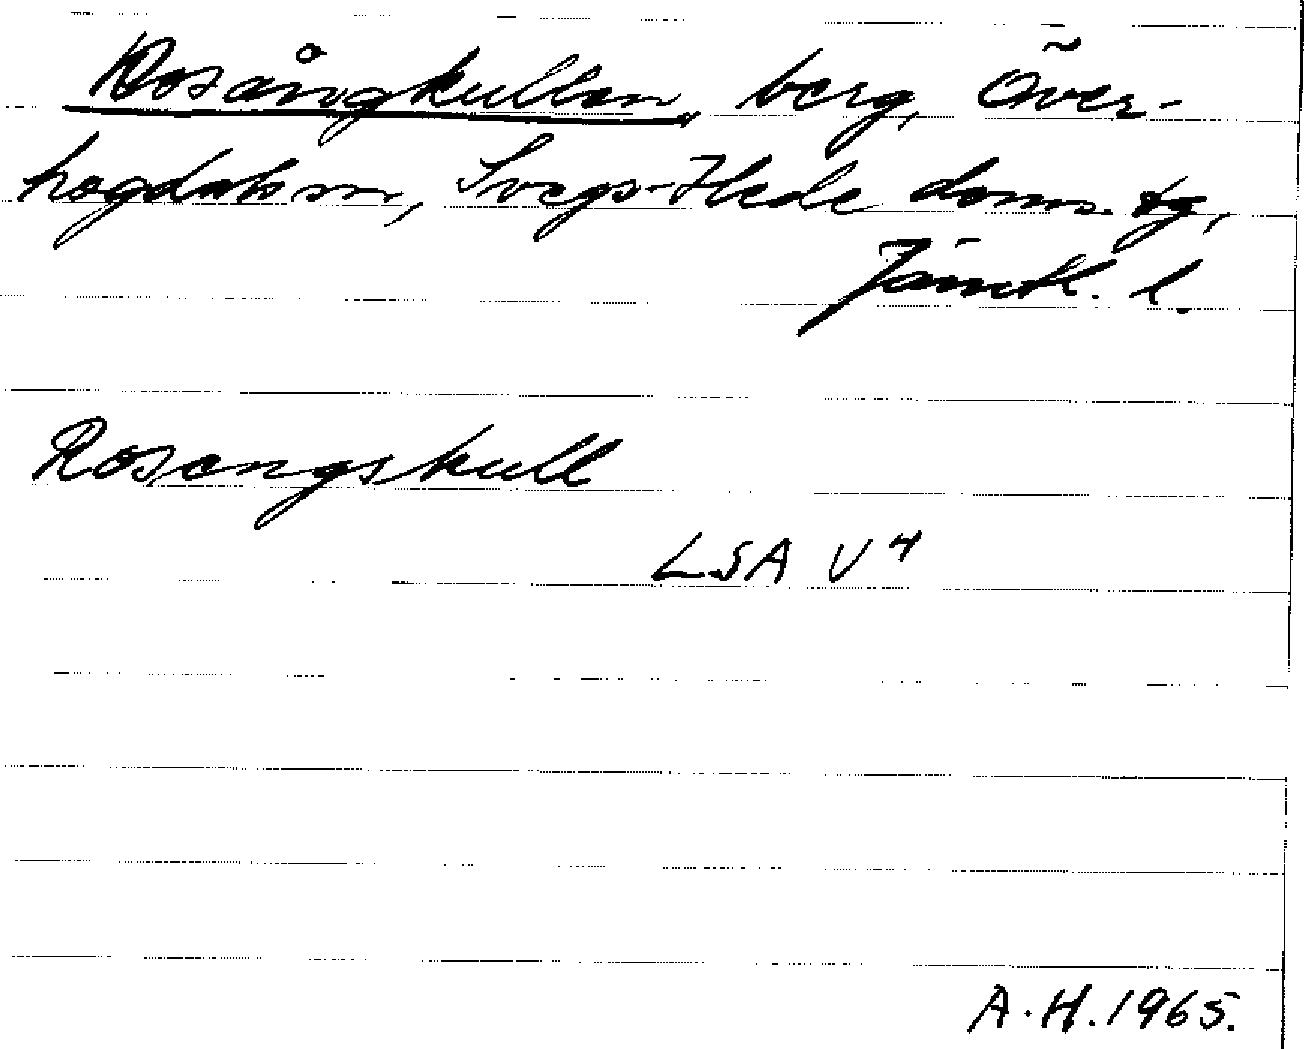 Rosångkullen, berg, Över-
hogdals sn, Svegs-Hede doms. tg,
Jämtl. l.
Rosengskull
LSA V 4
A.H. 1965.